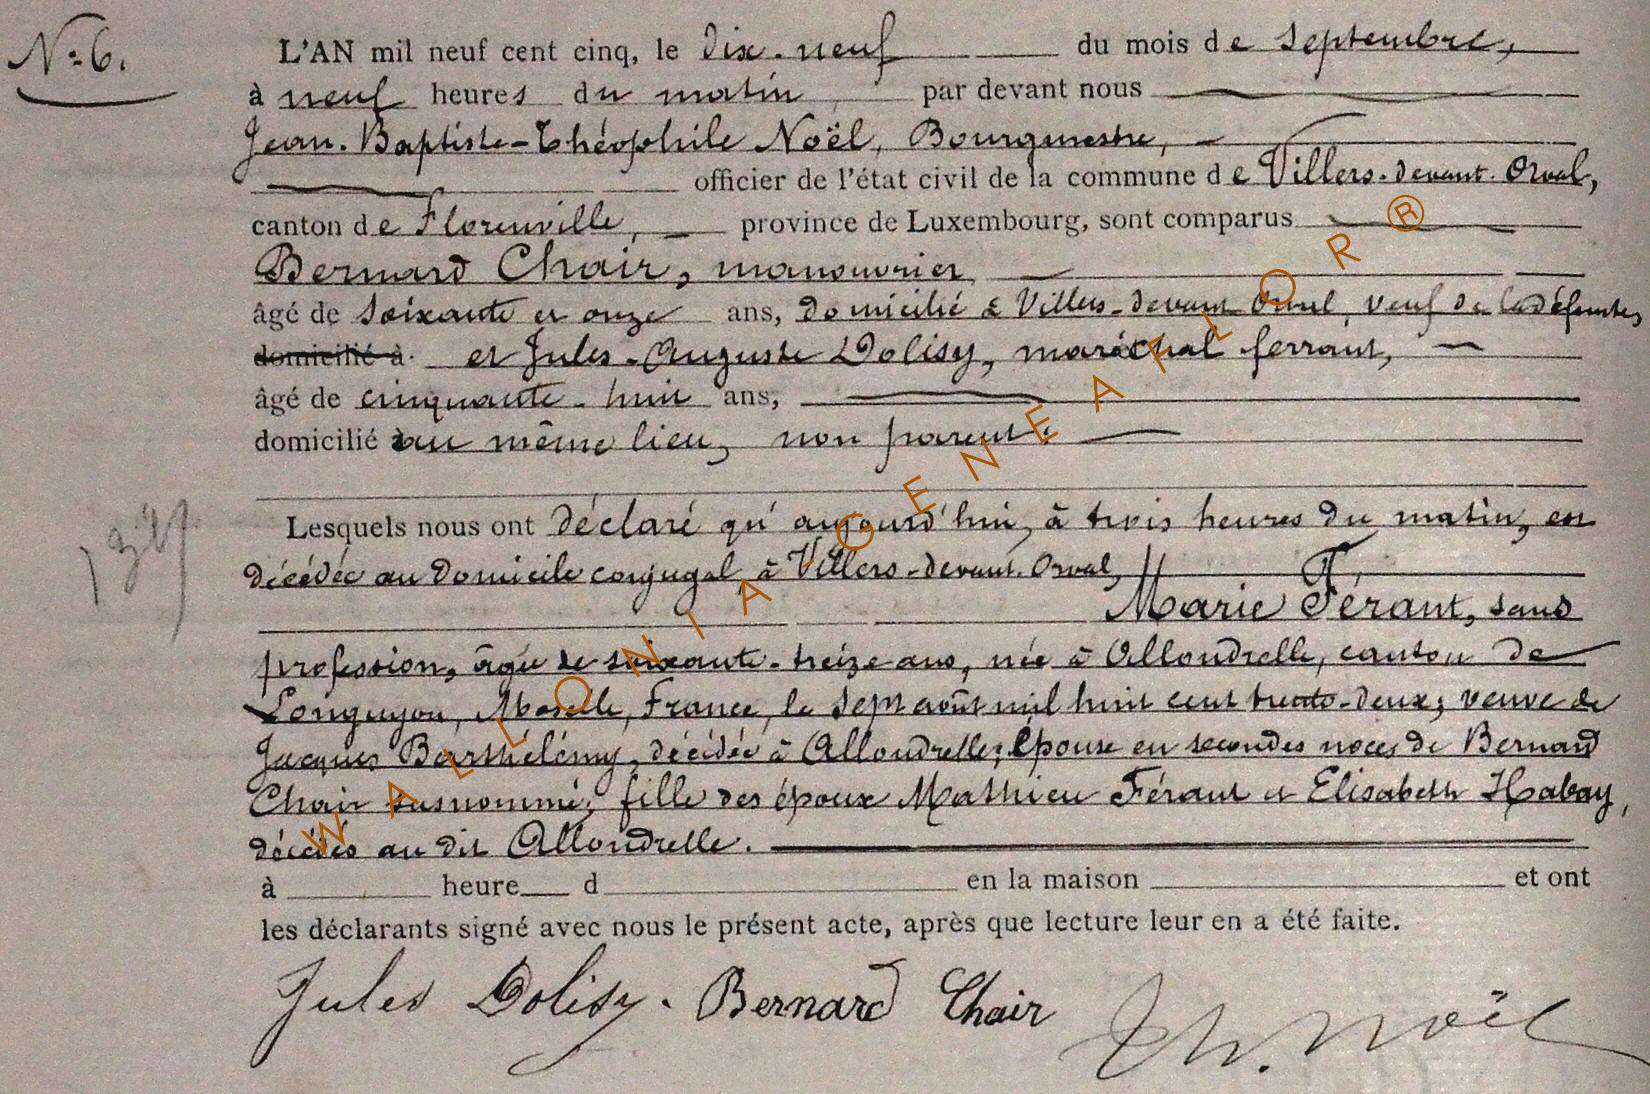 N° 6.
L'AN mil neuf cent cinq, le dix-neuf du mois de Septembre,
à neuf heures du matin, par devant nous
Jean-Baptiste-Théophile Noël, Bourgmestre,
officier de l'état civil de la commune de Villers-devant-Orval,
canton de Florenville, province de Luxembourg, sont comparus
Bernard Chair, manouvrier
âgé de soixante et onze ans, domicilié à Villers-devant-Orval, veuf de la défunte,
domicilié à et Jules-Auguste Dolisy, maréchal ferrant,
âgé de cinquante-huit ans,
domicilié au même lieu, non parent.
Lesquels nous ont déclaré qu'aujourd'hui, à trois heures du matin, est
décédée au domicile conjugal, à Villers-devant-Orval,
Marie Férant, sans
profession, âgée de soixante-treize ans, née à Allondrelle, canton de
Longuyon, Moselle, France, le sept août mil huit cent trente-deux; veuve de
Jacques Barthélémy, décédé à Allondrelle; épouse en secondes noces de Bernard
Chair susnommé; fille des époux Mathieu Férant et Elisabeth Habay,
décédés au dit Allondrelle.
à heure d en la maison et ont
les déclarants signé avec nous le présent acte, après que lecture leur en a été faite.
Jules Dolisy. Bernard Chair Th. Noël
WALLONIA GENEAFLOR®